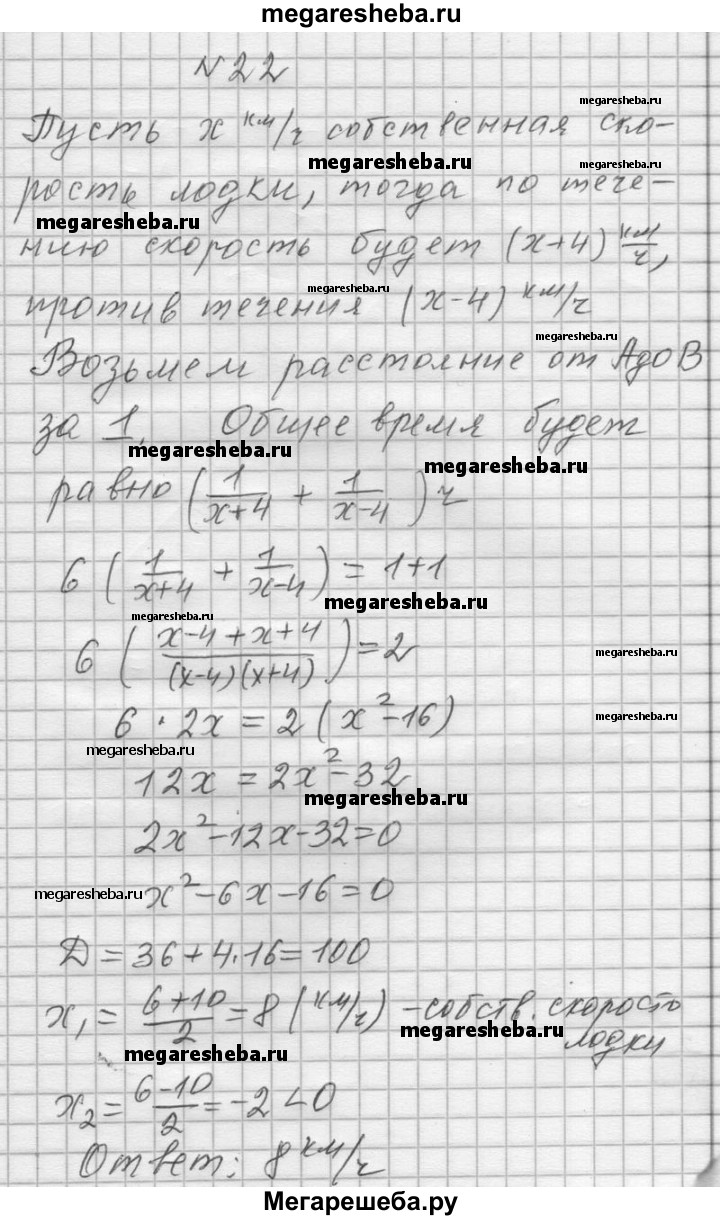 megaresheba.ru
№22
megaresheba.ru
Пусть x км/ч собственная ско-
megaresheba.ru
megaresheba.ru
рость лодки, тогда по тече-
megaresheba.ru
нию скорость будет (x+4) км/ч,
megaresheba.ru
против течения (x-4) км/ч
megaresheba.ru
Возьмем расстояние от A до B
за 1. Общее время будет
megaresheba.ru
megaresheba.ru
равно (1/(x+4) + 1/(x-4)) ч
6 (1/(x+4) + 1/(x-4)) = 1+1
megaresheba.ru
megaresheba.ru
6 ((x-4+x+4)/((x-4)(x+4))) = 2
megaresheba.ru
6 · 2x = 2 (x²-16)
megaresheba.ru
megaresheba.ru
12x = 2x²-32
megaresheba.ru
2x²-12x-32=0
megaresheba.ru
x²-6x-16=0
Д = 36+4·16=100
x₁ = (6+10)/2 = 8 (км/ч) - собств. скорость
megaresheba.ru
лодки
megaresheba.ru
x₂ = (6-10)/2 = -2 < 0
Ответ: 8 км/ч
Мегарешеба.ру